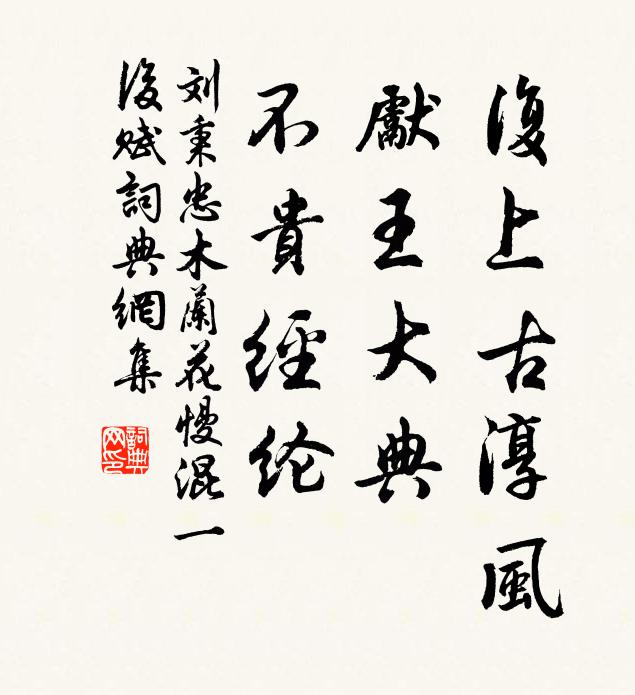 復上古淳風
獻王大典
不貴經纶
刘秉忠木蘭花慢混一
後賦詞典網集
詞典网印